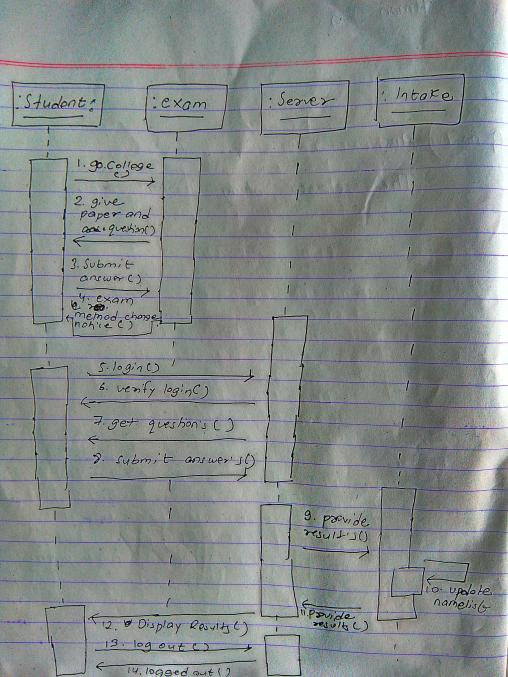 :Student:
:exam
:Server
:Intake
1. go.College
()
2. give
paper and
question()
3. Submit
answer()
4. exam
method change
notice()
5. login()
6. verify login()
7. get question's ()
8. submit answer's()
9. provide
results'()
10. update
namelist
11. provide
results()
12. Display Results()
13. log out ()
14. logged out ()